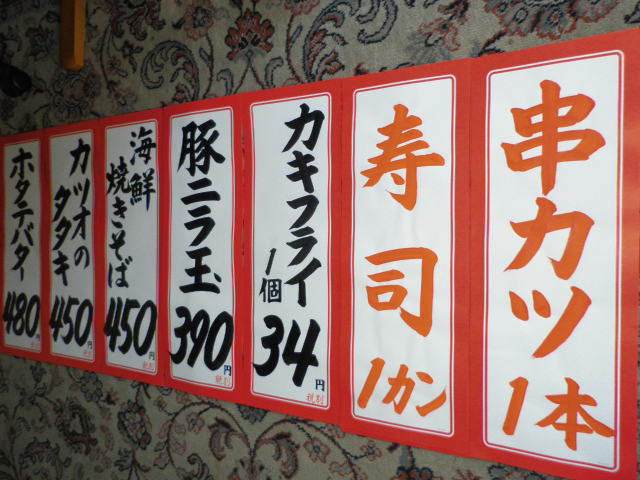 串カツ
1本
寿司
1カン
カキフライ
1個
34円
税別
豚ニラ玉
390円
税別
海鮮
焼きそば
450円
税別
カツオの
タタキ
450円
税別
ホタテバター
480円
税別